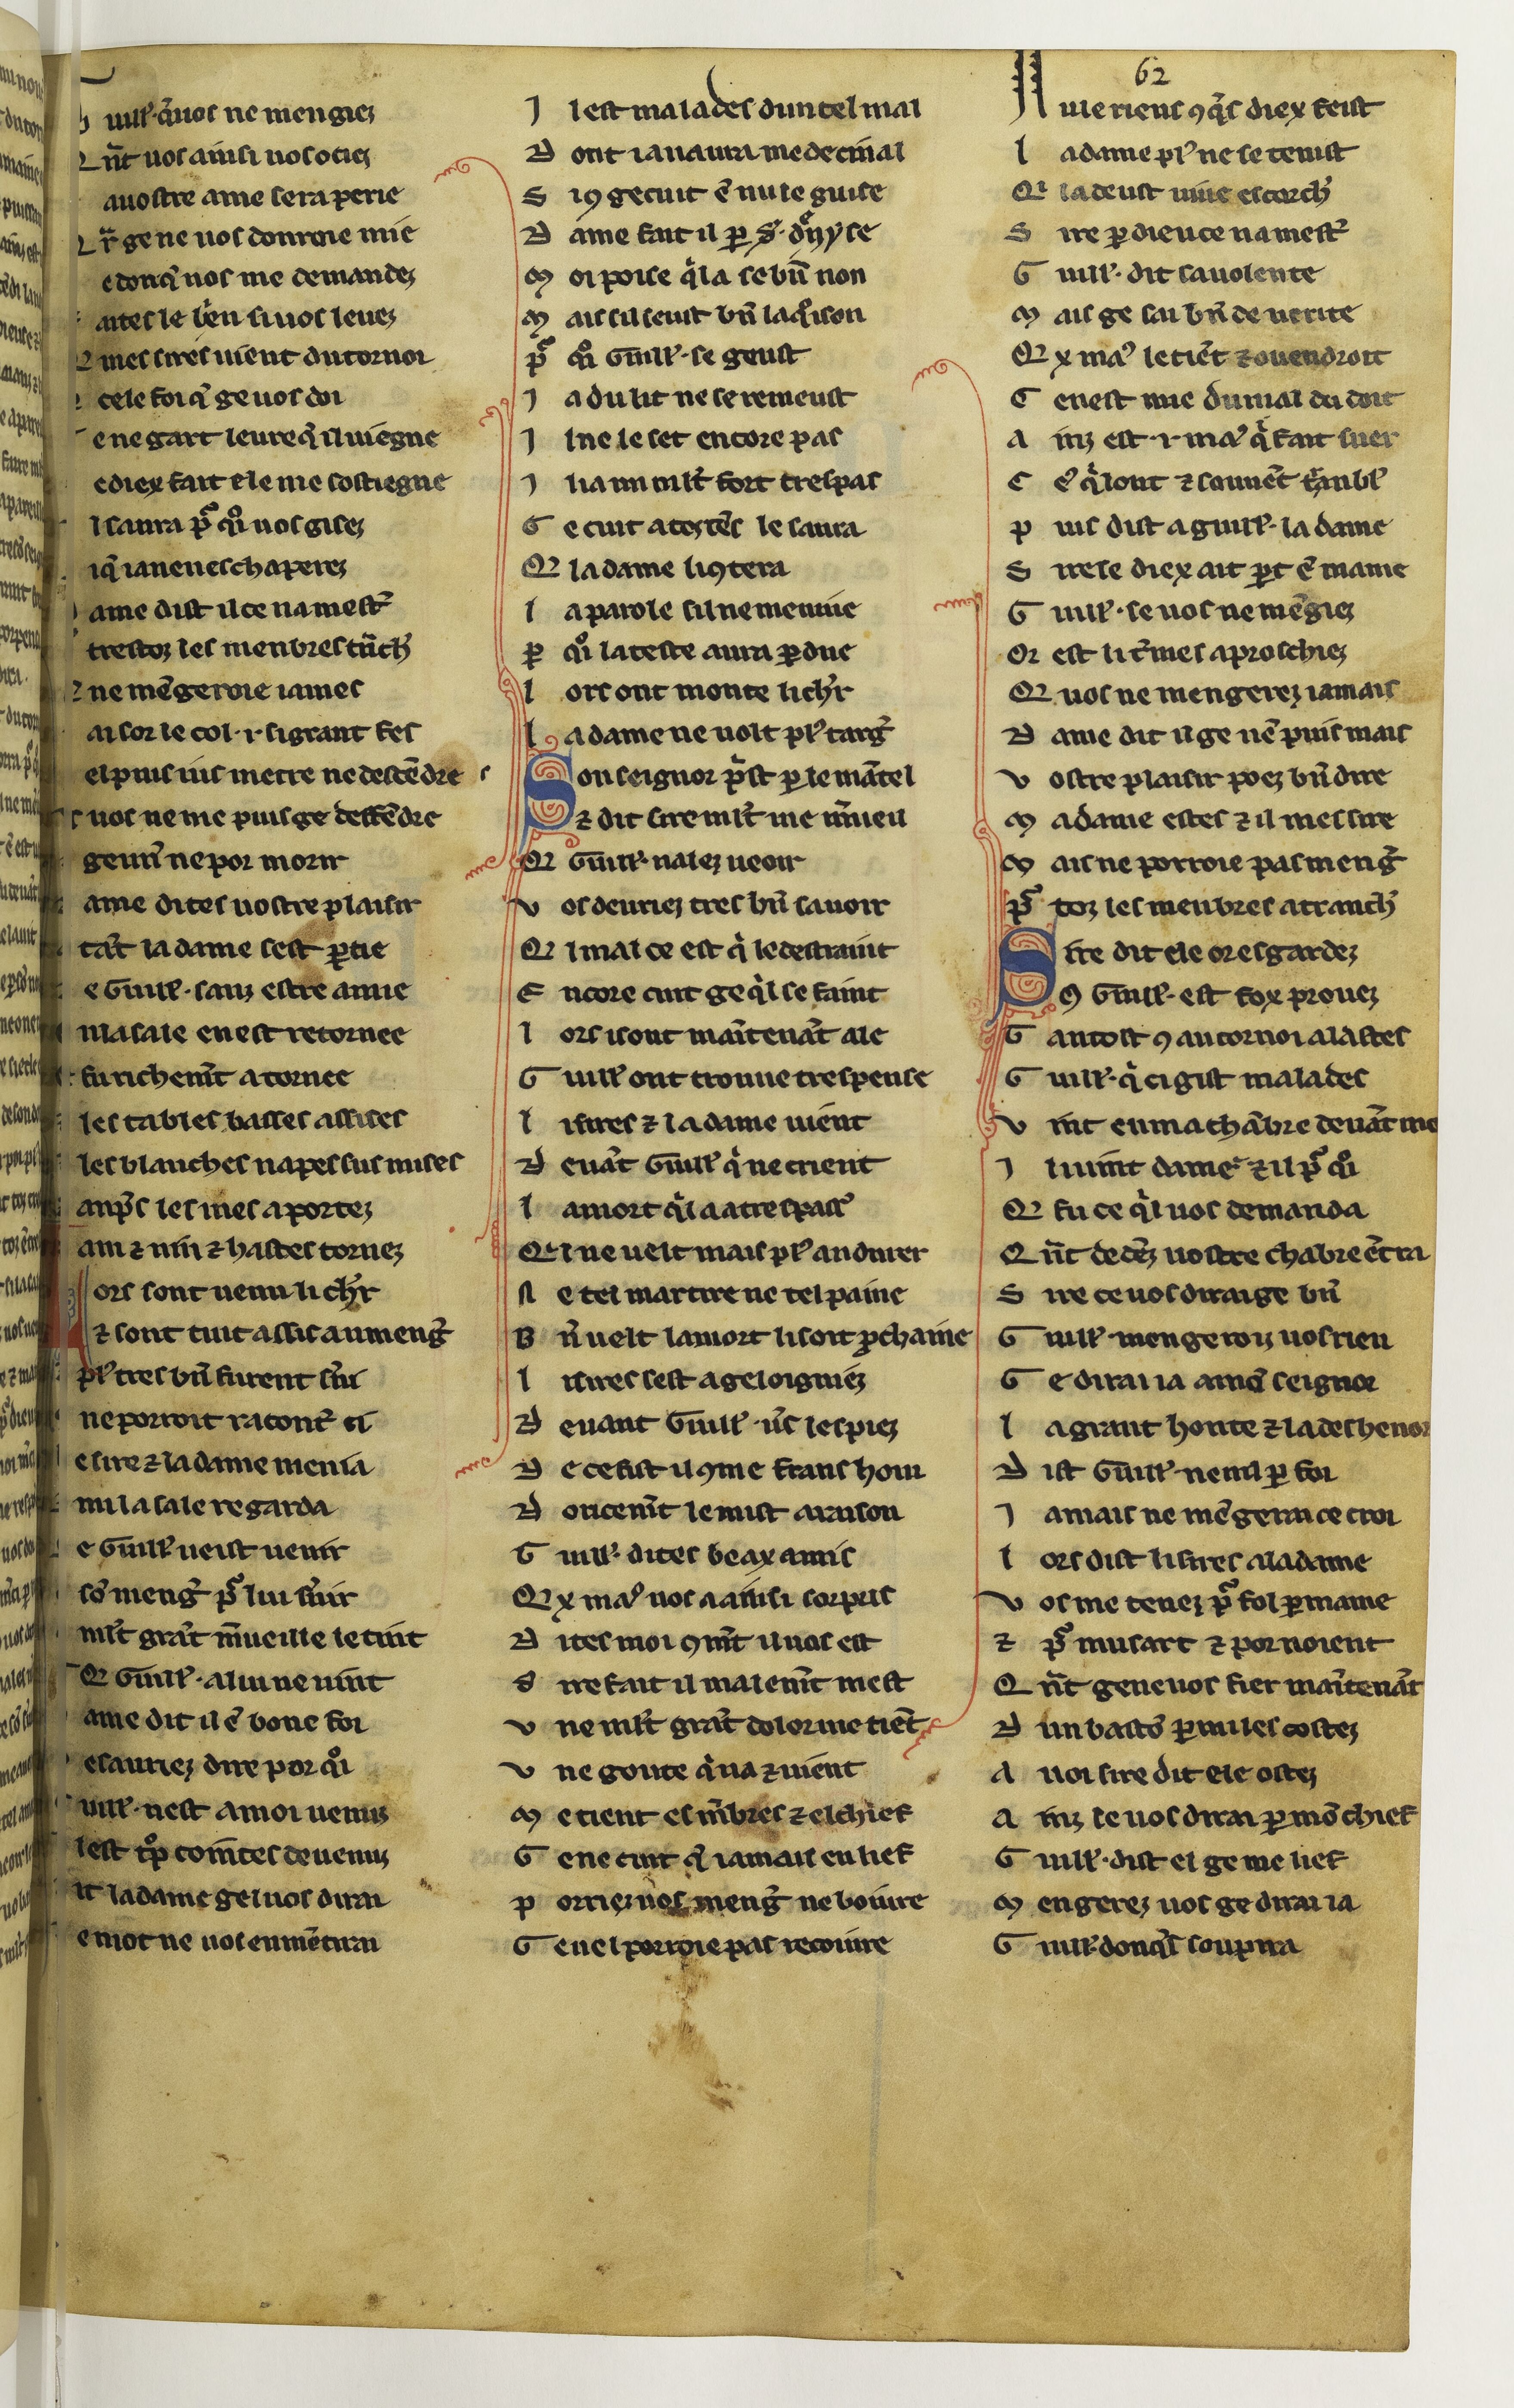 62
uillꝭ· q̃ uos ne mengiez
Q̃nt uos ainsi uos ociez
a uostre ame sera perie
Q̃r ge ne uos donroie mie
e donq̃ uos me demandez
aites le bien si uos leuez
Q mes sires uient du tornoi
cele foi q̃ ge uos doi
e ne gart leure q̃l uiegne
e diex fait ele me sostiegne
l saura p̃ q̊i uos gisez
iq̃ ia nen eschaperez
ame dist il ce na mest̃
trestoz les menbres tr̃ch̃
ne mẽgeroie iames
ai sor le col ·i· si grant fes
el puis ius metre ne destẽdre
uos ne me puis ge deffẽdre
geun̾ ne por morir
ame dites uostre plaisir
tãt la dame sest ꝑtie
e Guillꝭ· sanz estre amie
n la sale en est retornee
fu richem̃t atornee
les tables basses assises
les blanches napes sus mises
anp̃s les mes aportez
ain ⁊ uin ⁊ hastes tornez
Lors sont uenu li ch̃r
⁊ sont tuit assis au meng̃
pl̾ tres bñ furent s̃ui
ne porroit racont̃ ci
e sire ⁊ la dame menia
mi la sale regarda
e Guillꝭ ueist uenir
sõ meng̃ p̃ lui s̃uir
ml̃t grãt m̃ueille le tint
Q Guillꝭ· a lui ne uint
ame dit il ẽ bone foi
e sauriez dire por q̊i
uillꝭ· nest a moi uenuz
lest tp̊ cointes deuenuz
it la dame gel uos dirai
e mot ne uos en mẽtirai
I l est malades dun tel mal
D ont ia naura medecinal
S i ꝯ ge cuit ẽ nule guise
D ame fait il ꝑ s̃· dẽnyse
M oi poise q̃l a se bñ non
M ais sil seust bñ laq̊ison
p̃ q̊i Guillꝭ· se geust
I a du lit ne se remeust
I l ne le set encore pas
I l i a un ml̃t fort trespas
G e cuit a toztẽs le saura
Q la dame li ꝯtera
l a parole sil ne meniue
P q̊i la teste aura ꝑdue
l ors ont monte li ch̃r
l a dame ne uolt pl̾ targ̃
Son seignor p̃st ꝑ le mãtel
⁊ dit sire ml̃t me m̃ueil
Q Guillꝭ· nalez ueoir
V os deuriez tres bñ sauoir
Q l mal ce est q̃ le destraint
E ncore cuit ge q̃l se faint
l ors i sont maĩtenãt ale
G uillꝭ ont trouue trespense
l i sires ⁊ la dame uient
D euãt Guillꝭ q̃ ne crient
l a mort q̃l a a trespass̾
Q l ne uelt mais pl̾ andurer
N e tel martire ne tel paine
B ñ uelt la mort li soit ꝓchaine
l i sires sest ageloigniez
D euant Guillꝭ ·u̾s les piez
D e ce fist il ꝯme frans hom
D oucem̃t le mist a raison
G uillꝭ· dites beax amis
Q x ma̾ uos a ainsi sorpris
D ites moi ꝯm̃t il uos est
S ire fait il malem̃t mest
V ne ml̃t grãt dolor me tiẽt
V ne goute q̃ ua ⁊ uient
M e tient es m̃bres ⁊ el chief
G e ne cuit q̃ iamais en lief
P orriez uos meng̃ ne boiure
G e nel porroie pas recoiure
N ule riens ꝯq̃s diex feist
l a dame pl̾ ne se tenist
Q la deust uiue escorch̾
S ire ꝑ dieu ce na mest̾
G uillꝭ· dit sa uolente
M ais ge sai bñ de uerite
Q x ma̾ le tiẽt ⁊ ou endroit
C e nest mie du mal du doit
A inz est ·i· ma̾ q̃ fait suer
C e̾ q̃l ont ⁊ souuẽt t̃mbl̾
P uis dist a guillꝭ· la dame
S ire se diex ait p̃t ẽ mame
G uillꝭ· se uos ne mẽgiez
Or est li t̃mes aproschiez
Q uos ne mengerez iamais
D ame dit il ge nẽ puis mais
V ostre plaisir poez bñ dire
M a dame estes ⁊ il mes sire
M ais ne porroie pas meng̃
p̃ toz les menbres a tranch̾
Sire dit ele or esgardez
ꝯ Guillꝭ· est fox prouez
G antost ꝯ au tornoi alastes
G uillꝭ· q̃ ci gist malades
V int en ma chãbre deuãt me
I l i uint dame ⁊ il p̃ q̊i
Q fu ce q̃l uos demanda
Q ñt dedẽz uostre chabre ẽtra
S ire ce uos dirai ge bñ
G uillꝭ· mengeroiz uos rien
G e dirai ia a mõ seignor
l a grant honte ⁊ la deshenor
D ist Guillꝭ· nenil ꝑ foi
I amais ne mẽgerai ce croi
l ors dist li sires a la dame
V os me tenez p̃ fol ꝑ mame
⁊ p̃ musart ⁊ por noient
Q ñt ge ne uos fier maĩtenãt
D un bastõ ꝑmi les costez
A uoi sire dit ele ostez
A inz le uos dirai ꝑ mõ chief
G uillꝭ· dist el ge me lief
M engerez uos ge dirai ia
G uillꝭ· donq̃s soupira